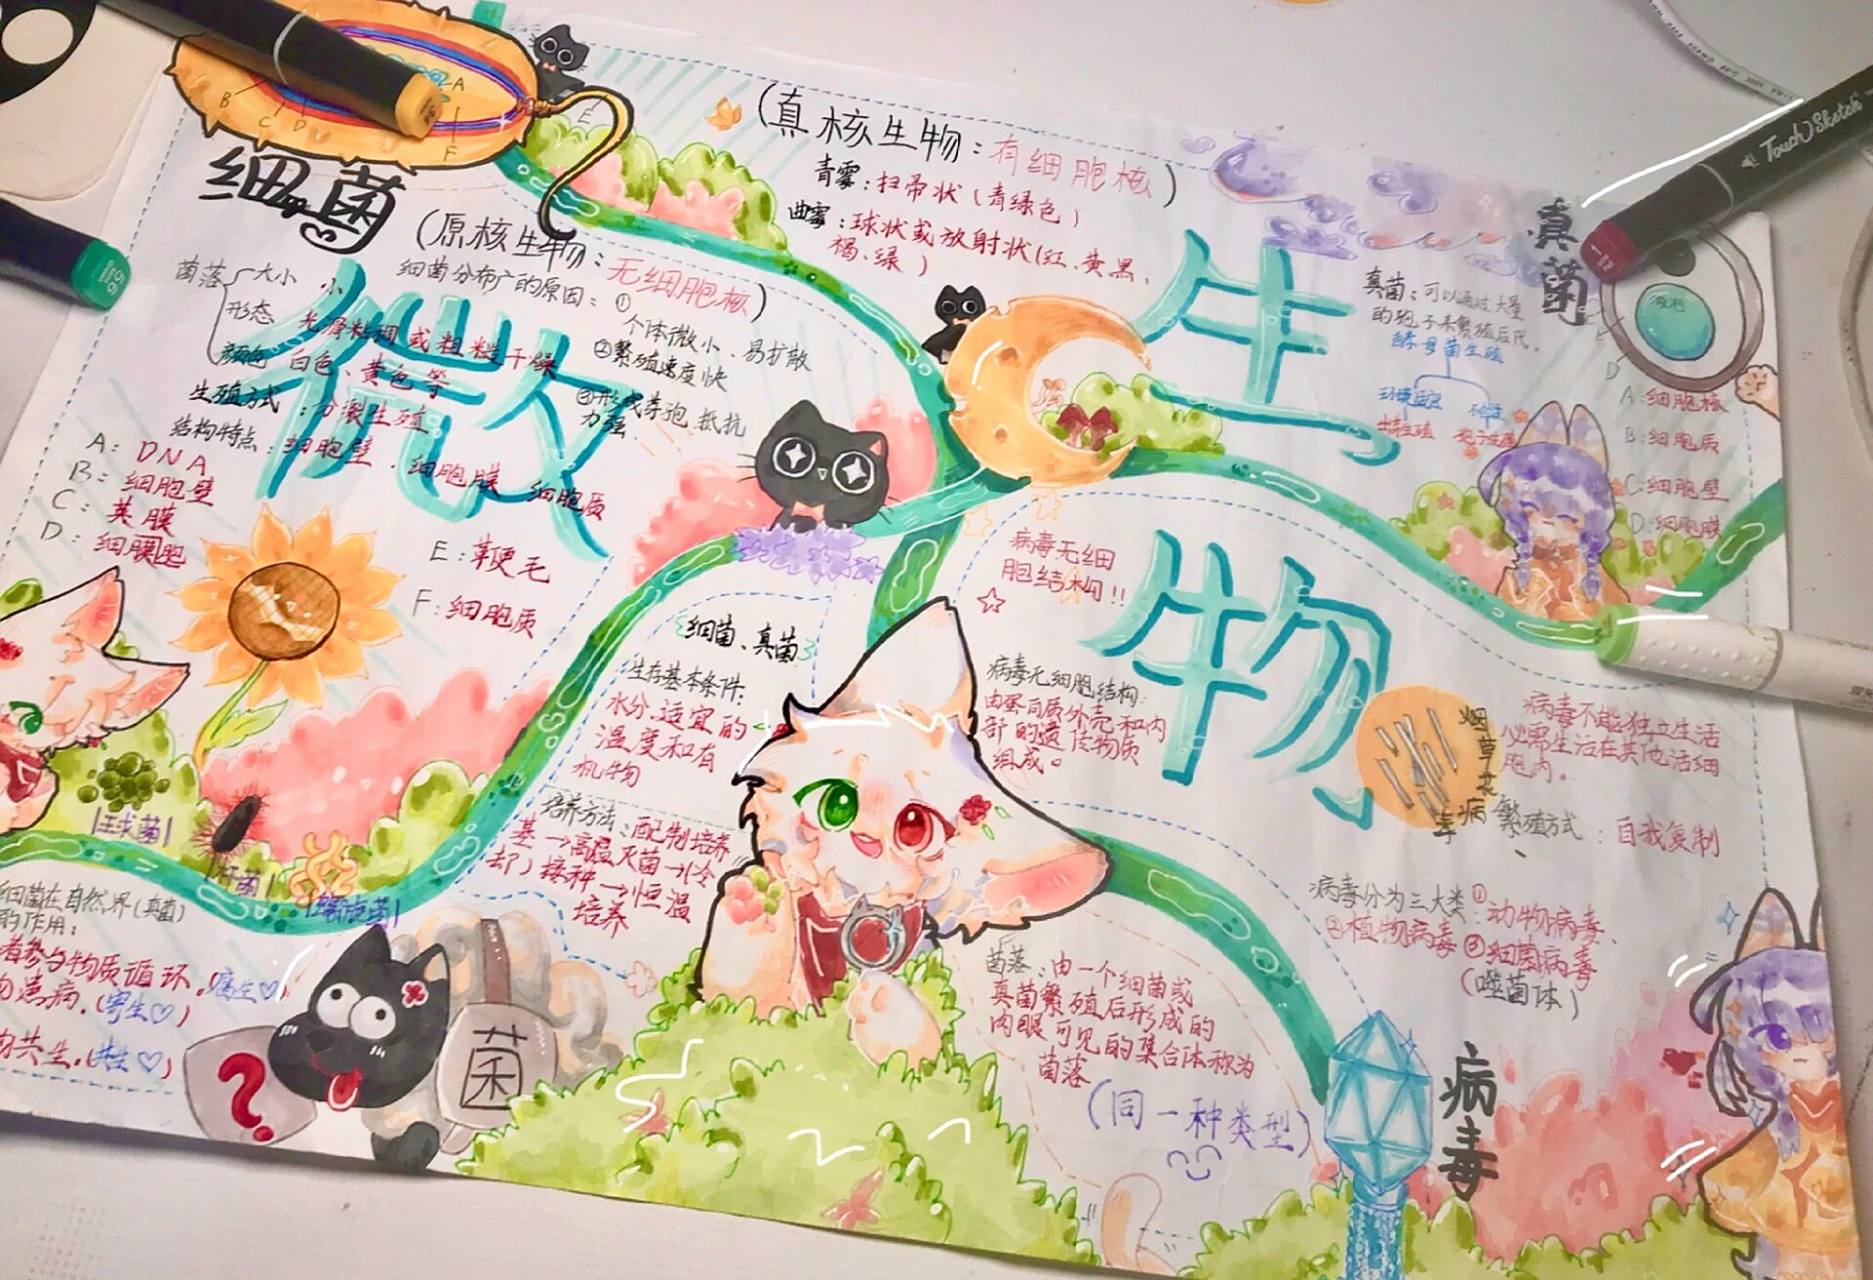 细菌
(原核生物：无细胞核)
菌落
大小 小
形态 光滑粘稠或粗糙干燥
颜色 白色、黄色等
生殖方式：分裂生殖
结构特点：细胞壁、细胞膜 细胞质
A：DNA
B：细胞壁
C：荚膜
D：细膜胞
E：鞭毛
F：细胞质
A
B
C
D
E
F
细菌分布广的原因：①
个体微小、易扩散
②繁殖速度快
③形成芽孢 抵抗
力强
(真核生物：有细胞核)
青霉：扫帚状(青绿色)
曲霉：球状或放射状(红、黄黑、
褐、绿)
微
生
物
真菌
真菌：可以通过大量
的孢子来繁殖后代。
酵母菌生殖
出芽生殖 孢子生殖
液泡
D
A：细胞核
B：细胞质
C：细胞壁
D：细胞膜
Touch Sketch
球菌
杆菌
螺旋菌
细菌在自然界(真菌)
的作用：
者参与物质循环。腐生♡
患病.(寄生♡)
共生.(共生♡)
?
菌
细菌、真菌
生存基本条件：
水分、适宜的
温度和有
机物
培养方法：配制培养
基→高温灭菌→(冷
却)接种→恒温
培养
病毒无细
胞结构!!
病毒无细胞结构：
由蛋白质外壳和内
部的遗传物质
组成。
烟草花
病毒
病毒不能独立生活
必需生活在其他活细
胞内。
繁殖方式：自我复制
病毒分为三大类：①动物病毒、
②植物病毒③细菌病毒
(噬菌体)
菌落：由一个细菌或
真菌繁殖后形成的
肉眼可见的集合体称为
菌落
(同一种类型)
病毒